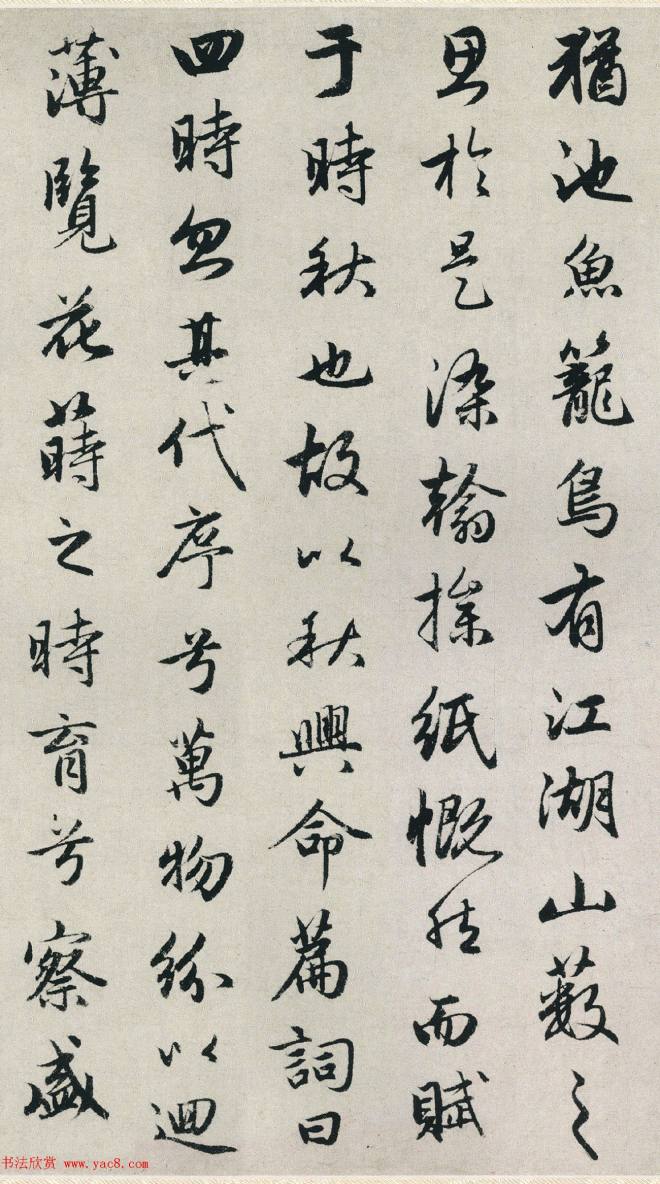 猶池魚籠鳥有江湖山藪之
思於是染翰操紙慨然而賦
于時秋也故以秋興命篇詞曰
四時忽其代序兮萬物紛以迴
薄覽花蒔之時育兮察盛
书法欣赏 www.yac8.com